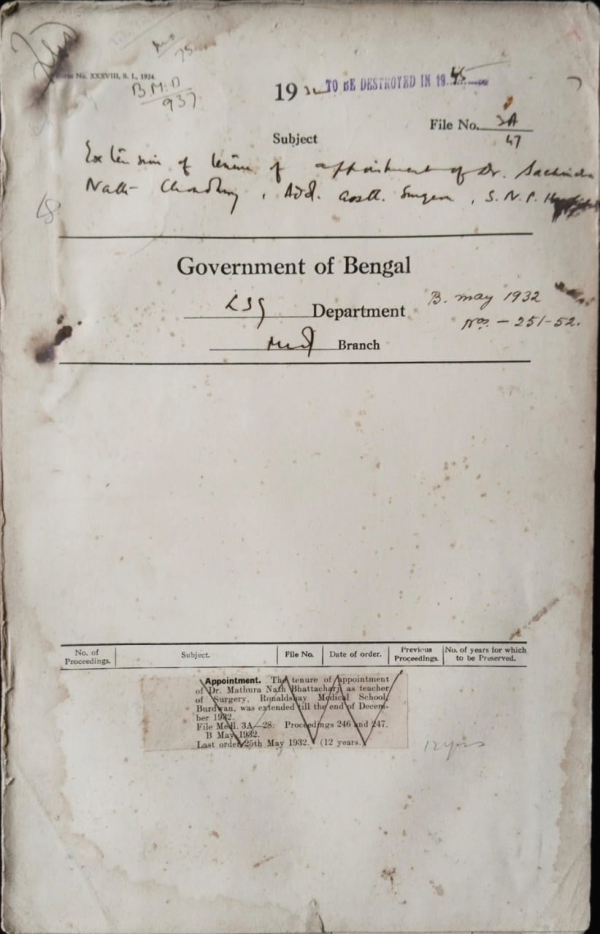 No. XXXVIII, S. I., 1924.
75
B M D
937
1932 TO BE DESTROYED IN 1945
File No. 3A
47
Subject
Extension of tenure of appointment of Dr. Sachindra
Nath Chowdhury, Add. Asstt. Surgeon, S. N. P.
Government of Bengal
LSG Department
B. May 1932
Nos. - 251-52.
Med Branch
No. of Proceedings. Subject. File No. Date of order. Previous Proceedings. No. of years for which to be Preserved.
Appointment. The tenure of appointment
of Dr. Mathura Nath Bhattacharji as teacher
of Surgery, Ronaldshay Medical School,
Burdwan, was extended till the end of Decem-
ber 1932.
File Medl. 3A—28. Proceedings 246 and 247.
B May 1932.
Last order 25th May 1932. (12 years.)
12 yrs